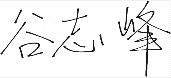 谷志峰